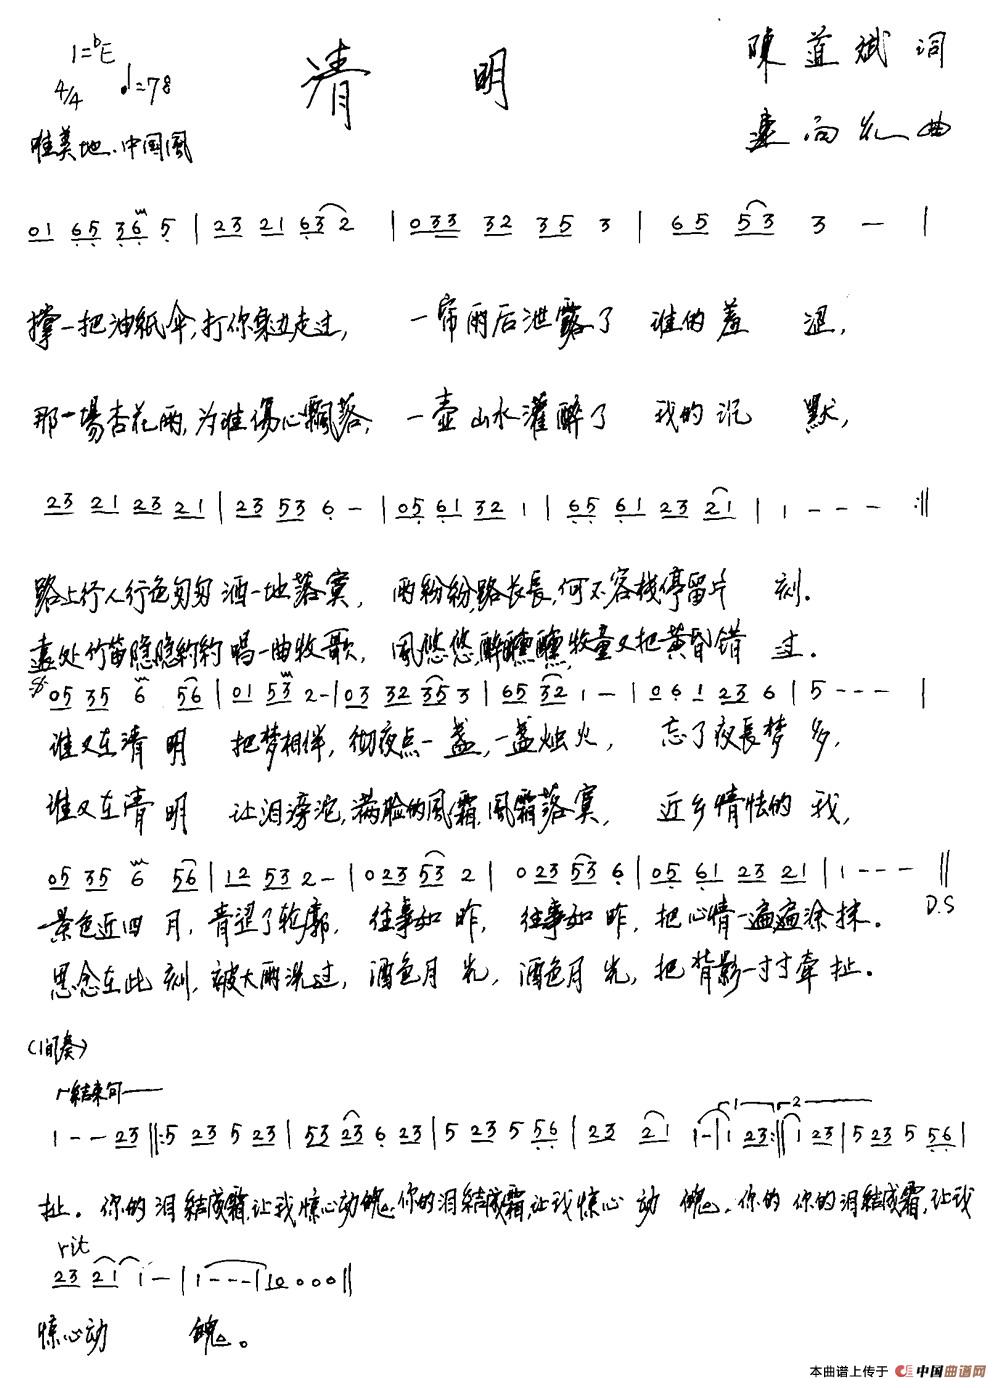 1=ᵇE
清 明
陳道斌 词
4/4 ♩=78
向 曲
唯美地、中国風
01 65 36 5 | 23 21 63 2 | 033 32 35 3 | 65 53 3 — |
撐一把油紙伞,打你身边走过, 一帘雨后泄露了 谁的羞 涩,
那一場杏花雨,为谁傷心飄落, 一壶山水灌醉了 我的沉 默,
23 21 23 21 | 23 53 6 — | 05 61 32 1 | 65 61 23 21 | 1 - - - :‖
路上行人行色匆匆洒一地落寞, 雨紛紛,路长長,何不客栈停留片 刻.
遠处竹笛隐隐約約唱一曲牧歌, 風悠悠醉醺醺,牧童又把黄昏错 过.
05 35 6 56 | 01 53 2 - | 03 32 35 3 | 65 32 1 — | 0 6 1 23 6 | 5 - - - |
谁又在清 明 把梦相伴, 彻夜点一盏,一盏烛火, 忘了夜長梦 多,
谁又在清 明 让泪滂沱,满脸的風霜,風霜落寞, 近乡情怯的 我,
05 35 6 56 | 12 53 2 - | 0 23 53 2 | 0 23 53 6 | 05 61 23 21 | 1 - - - ‖
D.S
景色近四 月, 青涩了轮廓, 往事如 昨, 往事如 昨, 把心情一遍遍涂抹.
思念在此 刻, 被大雨洗过, 酒色月 光, 酒色月 光, 把背影一寸寸牵 扯.
(间奏)
结束句
1 - - 23 ‖: 5 23 5 23 | 53 23 6 23 | 5 23 5 56 | 23 21 1 - | 1 23 :‖ 1 23 | 5 23 5 56 |
扯. 你的泪結成霜,让我惊心动魄.你的泪結成霜,让我惊心 动 魄. 你的 你的泪結成霜,让我
rit
23 21 1 — | 1 - - - | 10 0 0 0 ‖
惊心动 魄。
本曲谱上传于 中国曲谱网